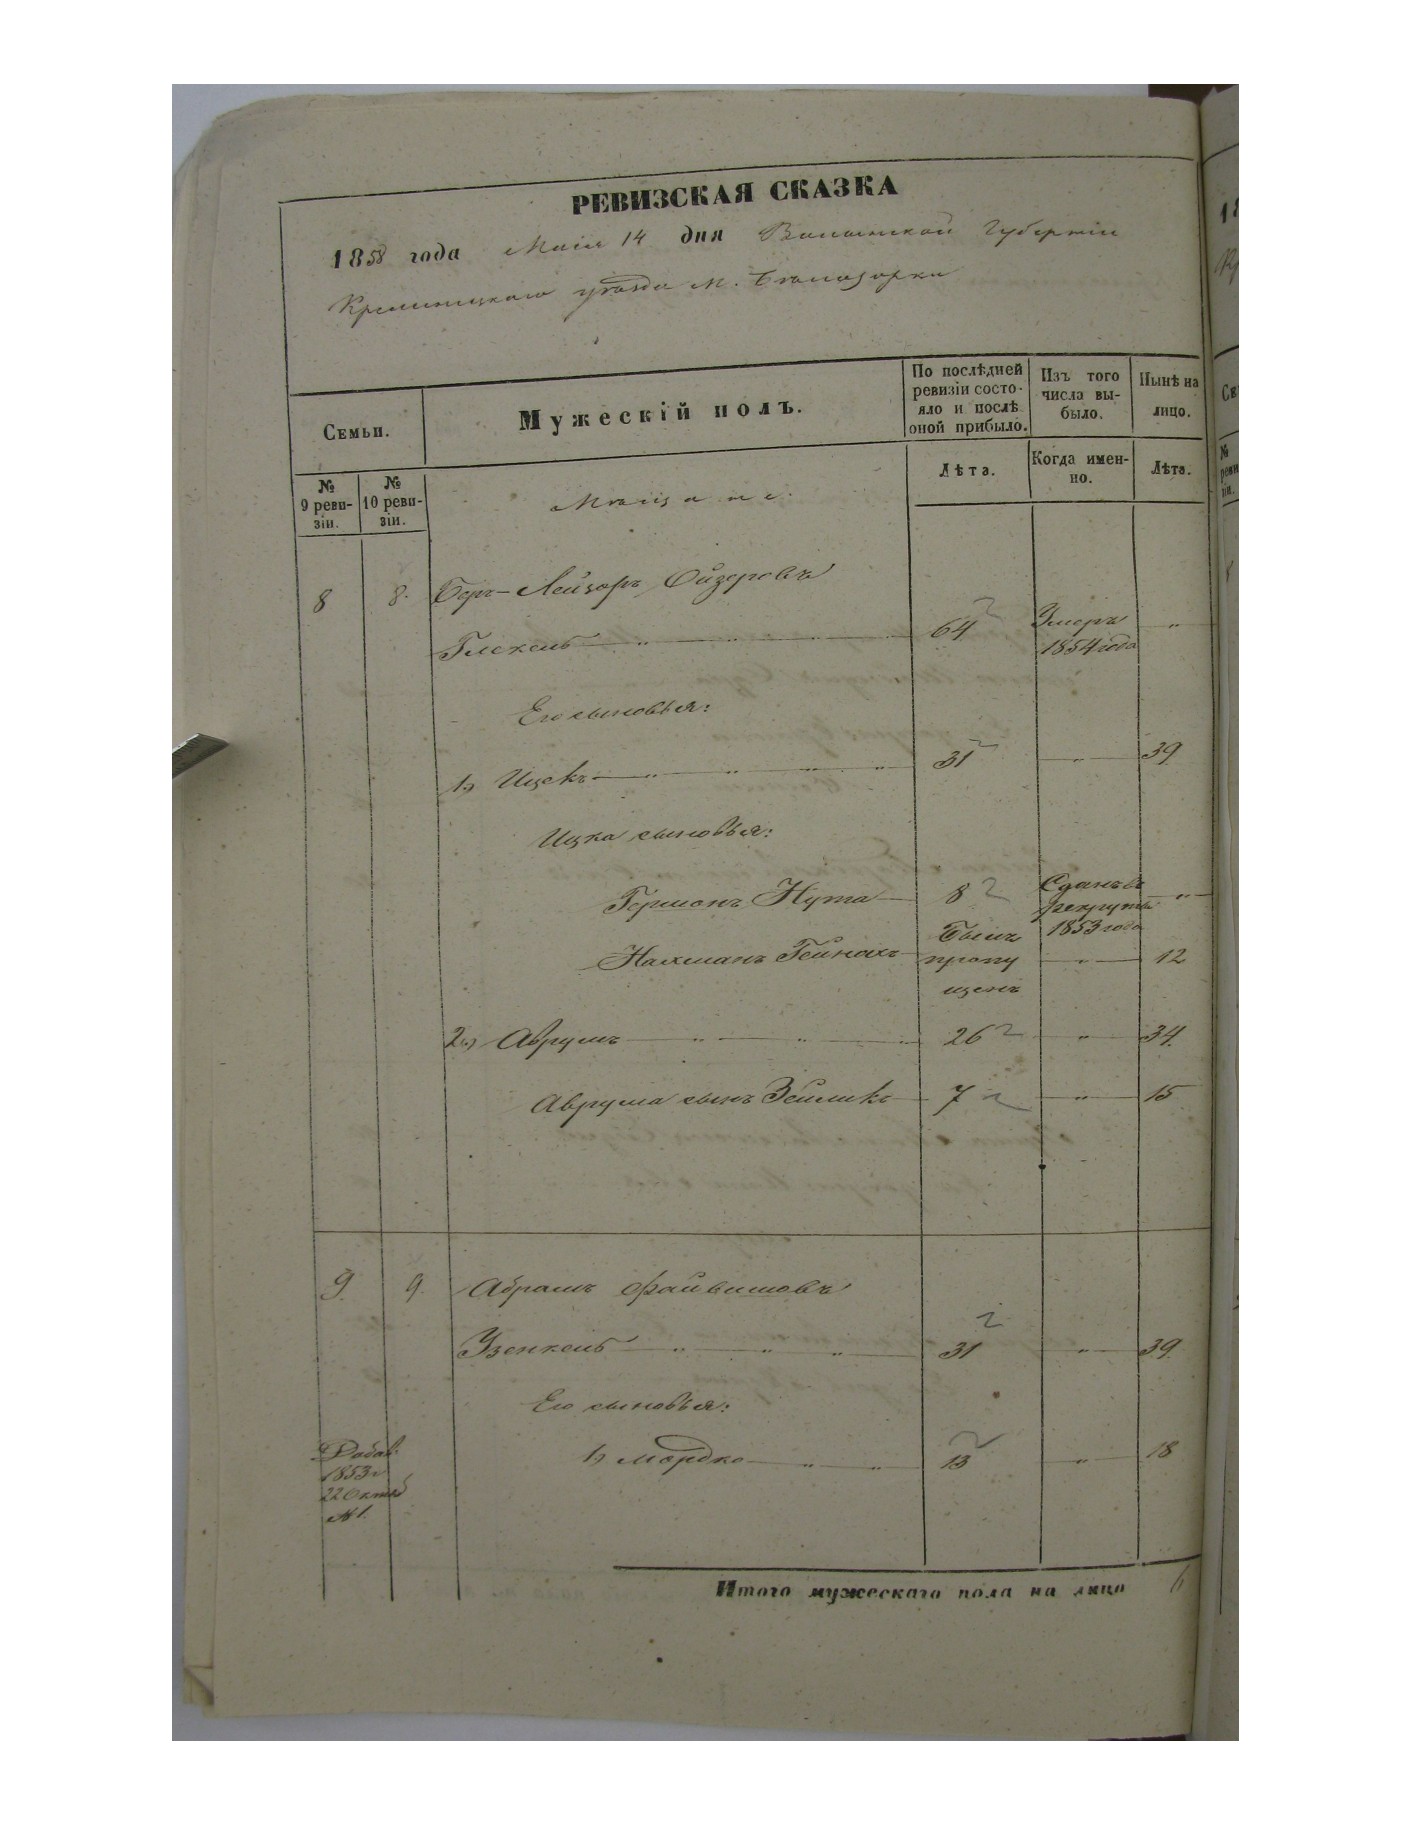 РЕВИЗСКАЯ СКАЗКА
1858 года Маія 14 дня Волынской Губерніи
Кременецкаго уѣзда м. Бѣлозорки
Семьи.
Мужескій полъ.
По послѣдней ревизіи состояло и послѣ оной прибыло.
Изъ того числа выбыло.
Нынѣ на лицо.
№ 9 ревизіи.
№ 10 ревизіи.
Лѣта.
Когда именно.
Лѣта.
Мѣщане.
8 8. Беръ-Лейзоръ Ойзеровъ
64 Умеръ 1854 года "
Его сыновья:
1) Ицекъ 31 " 39
Ицка сыновья:
Гершонъ Нута 8 Сданъ въ рекруты 1853 года "
Нахманъ Гейнахъ Былъ пропущенъ " 12
2) Аврумъ 26 " 34.
Аврума сынъ Зейликъ 7 " 15
9. 9. Абрамъ Файвишовъ
Узенкель 31 " 39.
Его сыновья:
1) Мордко 13 " 18
Добав. 1853 г. 22 Октяб. № 1.
Итого мужескаго пола на лицо 6